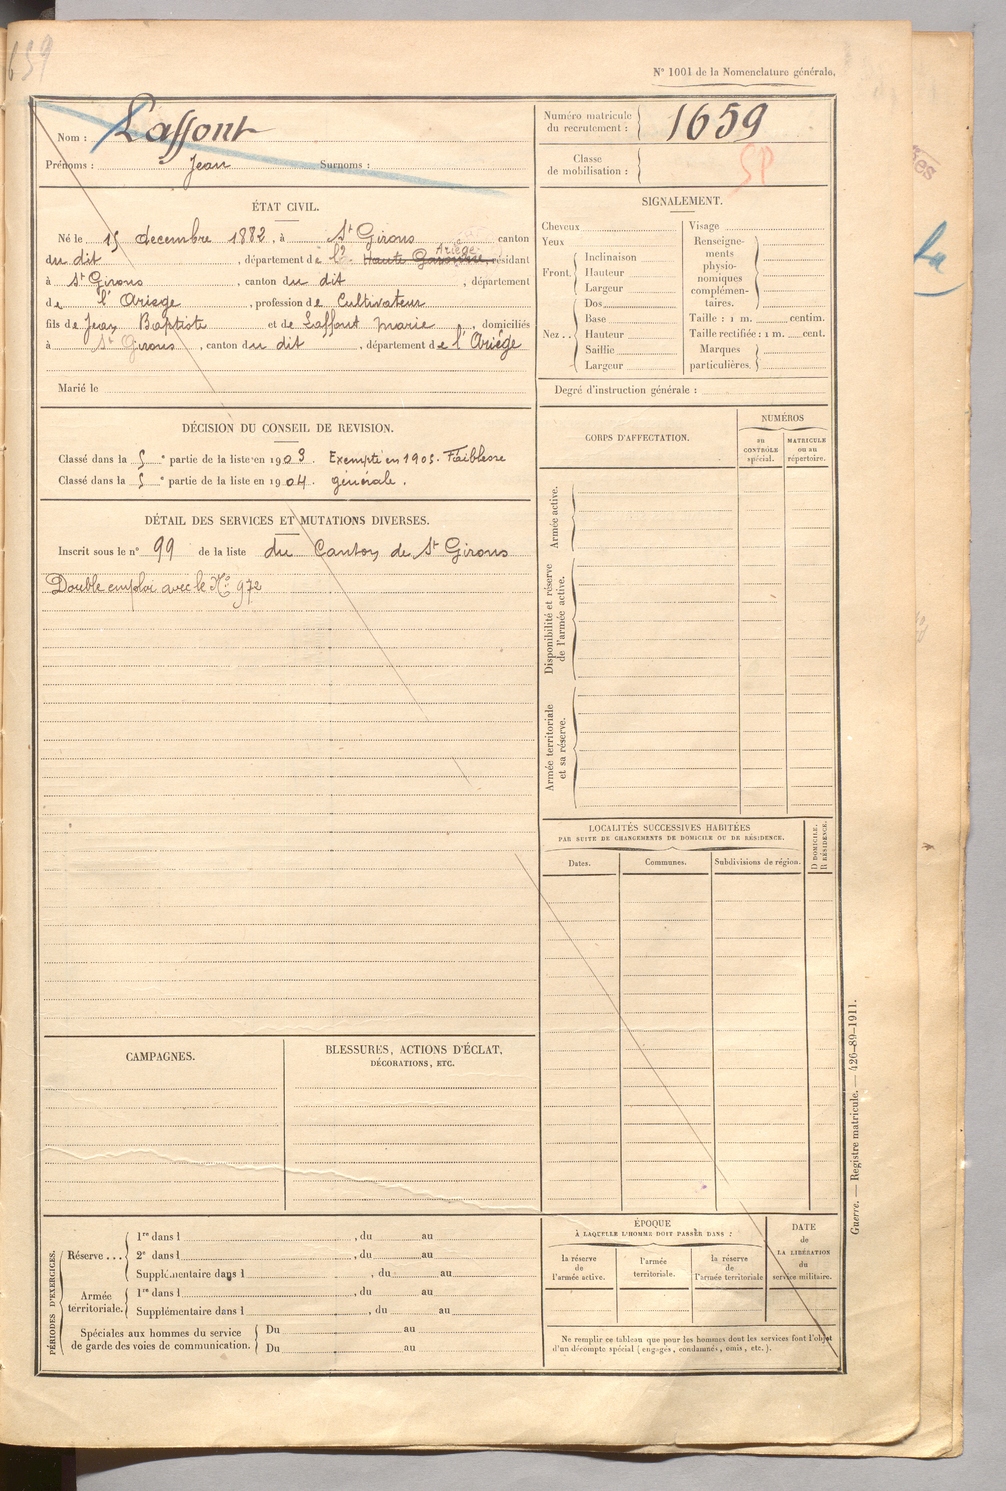 659
N° 1001 de la Nomenclature générale.
Nom : Laffont
Prénoms : Jean Surnoms :
Numéro matricule du recrutement : 1659
Classe de mobilisation :
SP
ÉTAT CIVIL.
Né le 15 decembre 1882, à St Girons canton
Ariège
du dit, département de l' Haute Garonne, résidant
à St Girons, canton du dit, département
de l'Ariege, profession de Cultivateur
fils de Jean Baptiste et de Laffont marie, domiciliés
à St Girons, canton du dit, département de l'Ariège
Marié le
SIGNALEMENT.
Cheveux
Yeux
Front. Inclinaison
Hauteur
Largeur
Nez.. Dos
Base
Hauteur
Saillie
Largeur
Visage
Renseigne-
ments
physio-
nomiques
complémen-
taires.
Taille : 1 m. centim.
Taille rectifiée : 1 m. cent.
Marques
particulières.
Degré d'instruction générale :
DÉCISION DU CONSEIL DE REVISION.
Classé dans la 5 e partie de la liste en 1903. Exempté en 1903. Faiblesse
Classé dans la 5 e partie de la liste en 1904. générale.
DÉTAIL DES SERVICES ET MUTATIONS DIVERSES.
Inscrit sous le n° 99 de la liste du Canton de St Girons
Double emploi avec le No 972
CORPS D'AFFECTATION.
NUMÉROS
au
CONTRÔLE
spécial.
MATRICULE
ou au
répertoire.
Armée active.
Disponibilité et réserve
de l'armée active.
Armée territoriale
et sa réserve.
LOCALITÉS SUCCESSIVES HABITÉES
PAR SUITE DE CHANGEMENTS DE DOMICILE OU DE RÉSIDENCE.
Dates. Communes. Subdivisions de région.
D DOMICILE.
R RÉSIDENCE.
CAMPAGNES.
BLESSURES, ACTIONS D'ÉCLAT,
DÉCORATIONS, ETC.
PÉRIODES D'EXERCICES.
Réserve ...
1re dans 1 , du au
2e dans 1 , du au
Supplémentaire dans 1 , du au
Armée
territoriale.
1re dans 1 , du au
Supplémentaire dans 1 , du au
Spéciales aux hommes du service
de garde des voies de communication.
Du au
Du au
ÉPOQUE
À LAQUELLE L'HOMME DOIT PASSER DANS :
la réserve
de
l'armée active.
l'armée
territoriale.
la réserve
de
l'armée territoriale
DATE
de
LA LIBÉRATION
du
service militaire.
Ne remplir ce tableau que pour les hommes dont les services font l'objet
d'un décompte spécial (engagés, condamnés, omis, etc.).
Guerre. — Registre matricule. — 426-89-1911.